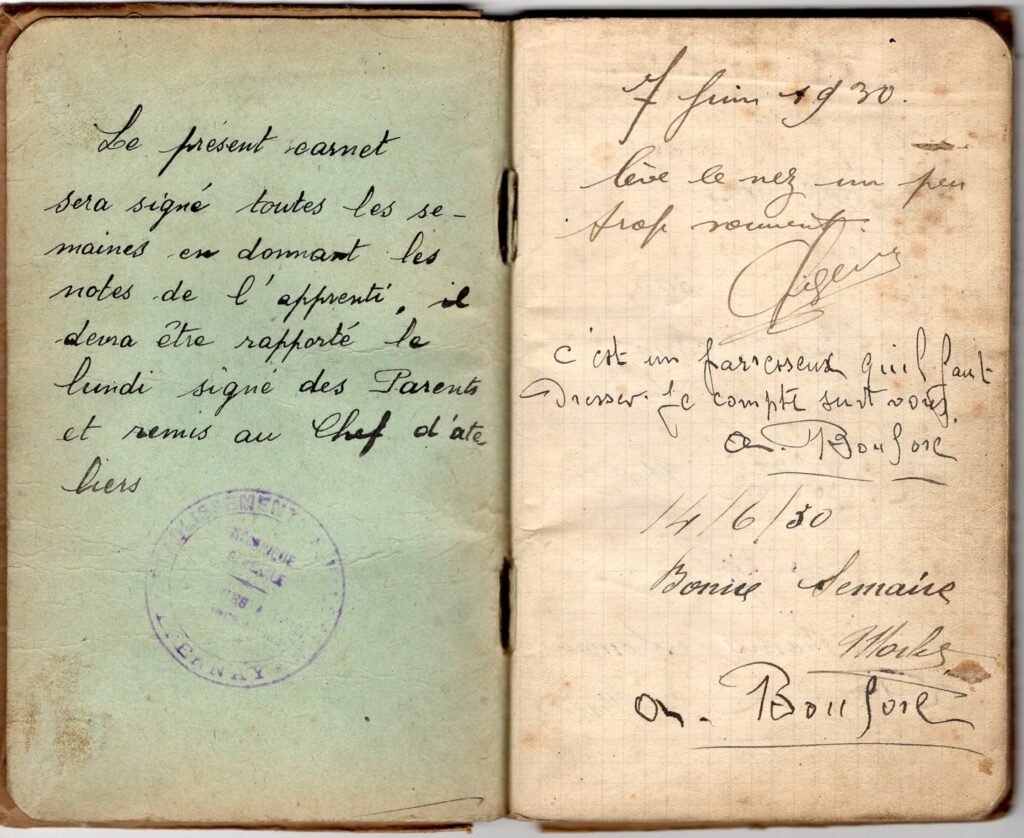 Le présent carnet
sera signé toutes les se-
maines en donnant les
notes de l'apprenti, il
devra être rapporté le
lundi signé des Parents
et remis au Chef d'ate
liers
EPERNAY
7 Juin 1930.
lève le nez un peu
trop souvent.
c'est un parresseux quil faut
Dresser. Je compte surt vous.
14/6/30
Bonne Semaine